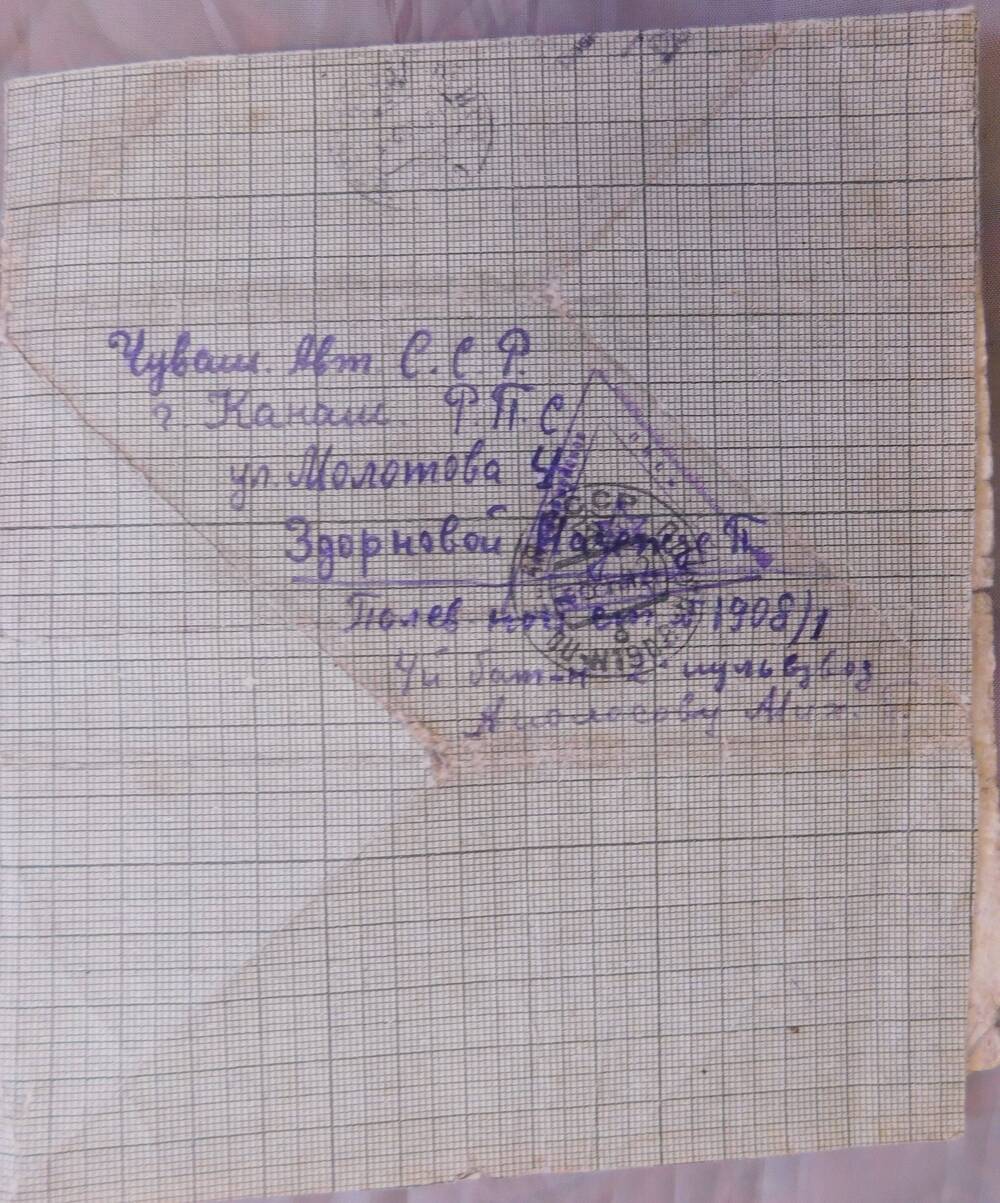 Чуваш. Авт. С. С. Р.
г. Канаш. Ф. П. С
ул. Молотова 4
Здорновой Надежде П
Полев поч ст № 1908/1
4й бат-н 2й пульвзвод
Мих.
СССР